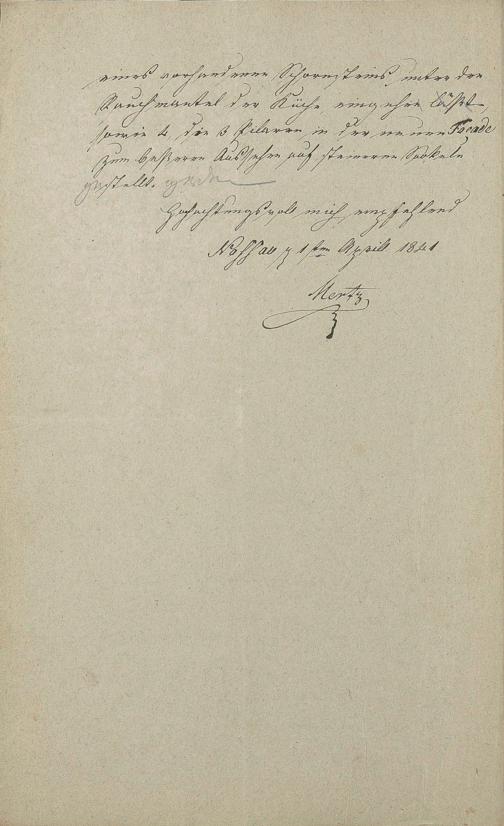 eines vorhandenen Schornsteins, unter den
Rauchmantel der Küche eingehen läßt
sowie 4, die 3 Pilaren in der neuen Facade
zum beßeren Aussehen auf steinernen Sockeln
gestellt. werden
Hochachtungsvoll mich empfehlend
1ten April 1841
Mertz